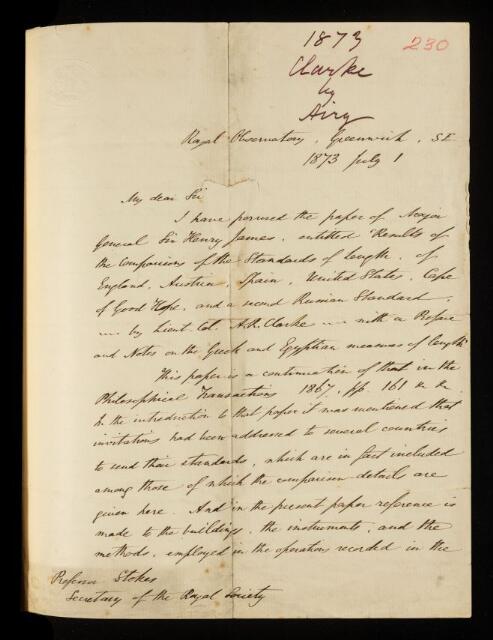 1873
230
Clarke
by
Airy
Royal Observatory, Greenwich, S.E.
1873 July 1
My dear Sir
I have perused the paper of Major
General Sir Henry James, entitled "Results of
the Comparisons of the Standards of Length, of
England, Austria, Spain, United States, Cape
of Good Hope, and a second Russian Standard,
.... by Lieut. Col. A. R. Clarke .... with a Preface
and Notes on the Greek and Egyptian measures of length"
This paper is a continuation of that in the
Philosophical Transactions 1867, pp. 161 &c &c.
In the introduction to that paper it was mentioned that
invitations had been addressed to several countries
to send their standards, which are in fact included
among those of which the comparison details are
given here. And in the present paper reference is
made to the buildings, the instruments, and the
methods, employed in the operations recorded in the
Professor Stokes
Secretary of the Royal Society